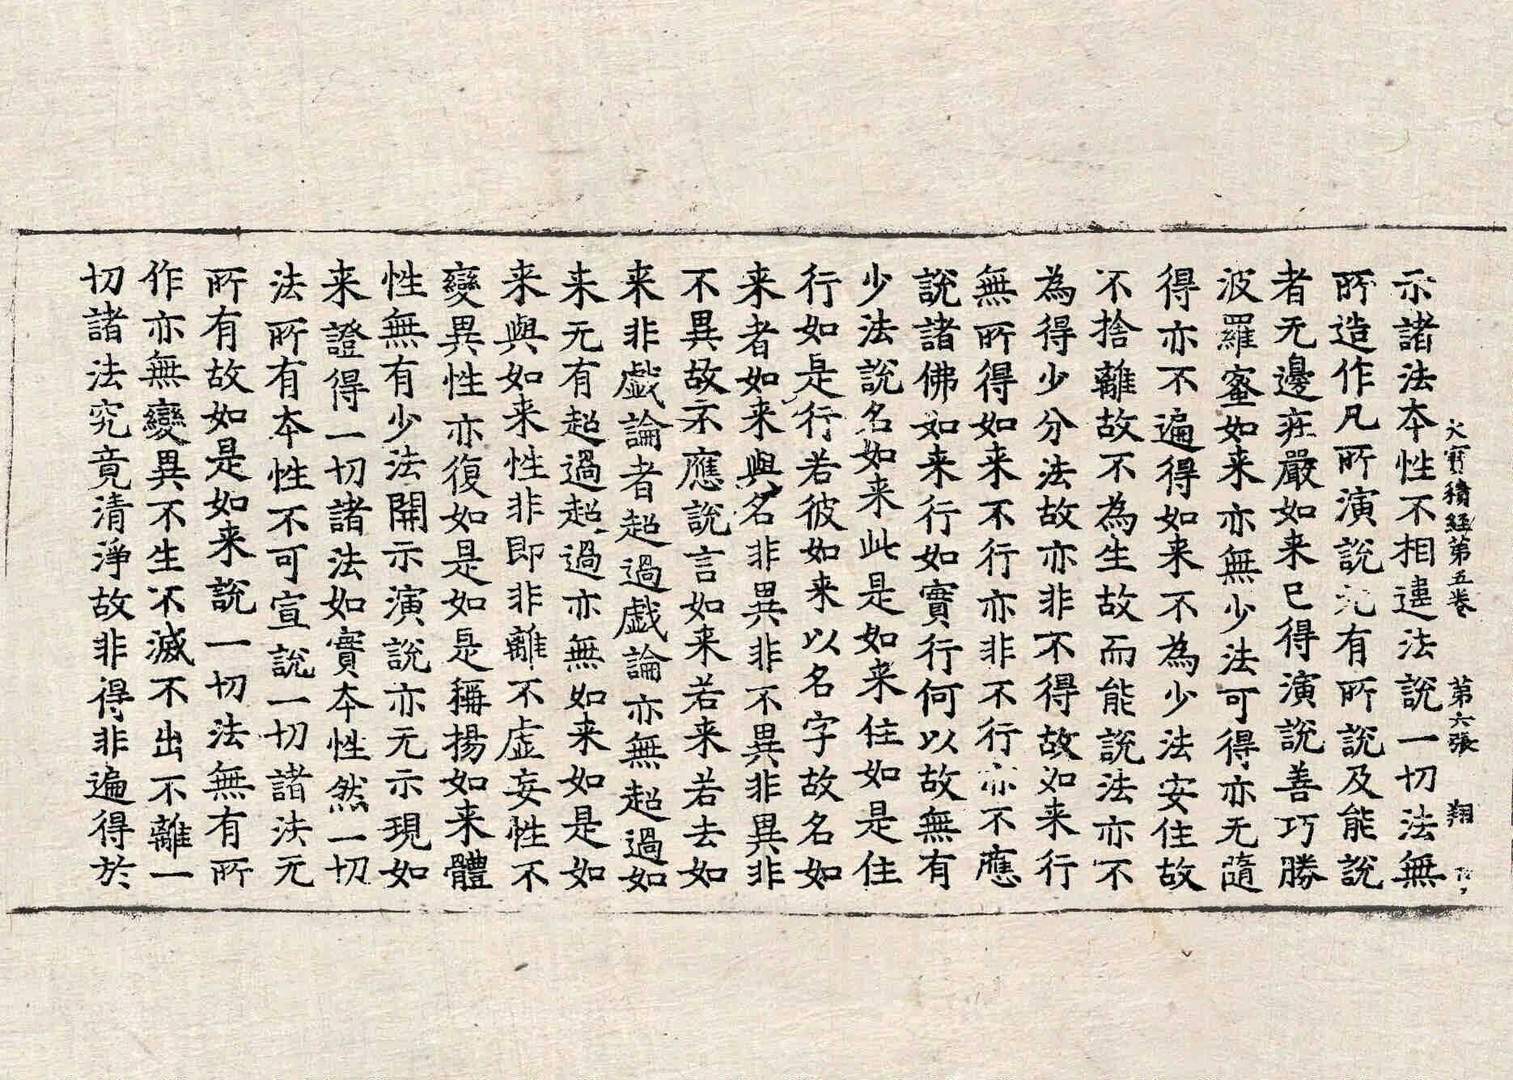 大寶積經第五卷 第六張 翔
示諸法本性不相違法說一切法無
所造作凡所演說无有所說及能說
者无邊莊嚴如来已得演說善巧勝
波羅蜜如来亦無少法可得亦无隨
得亦不遍得如来不為少法安住故
不捨離故不為生故而能說法亦不
為得少分法故亦非不得故如来行
無所得如来不行亦非不行亦不應
說諸佛如来行如實行何以故無有
少法說名如来此是如来住如是住
行如是行若彼如来以名字故名如
来者如来與名非異非不異非異非
不異故不應說言如来若来若去如
来非戱論者超過戱論亦無超過如
来无有超過超過亦無如来如是如
来與如来性非即非離不虛妄性不
變異性亦復如是如是稱揚如来體
性無有少法開示演說亦无示現如
来證得一切諸法如實本性然一切
法所有本性不可宣說一切諸法无
所有故如是如来說一切法無有所
作亦無變異不生不滅不出不離一
切諸法究竟清淨故非得非遍得於